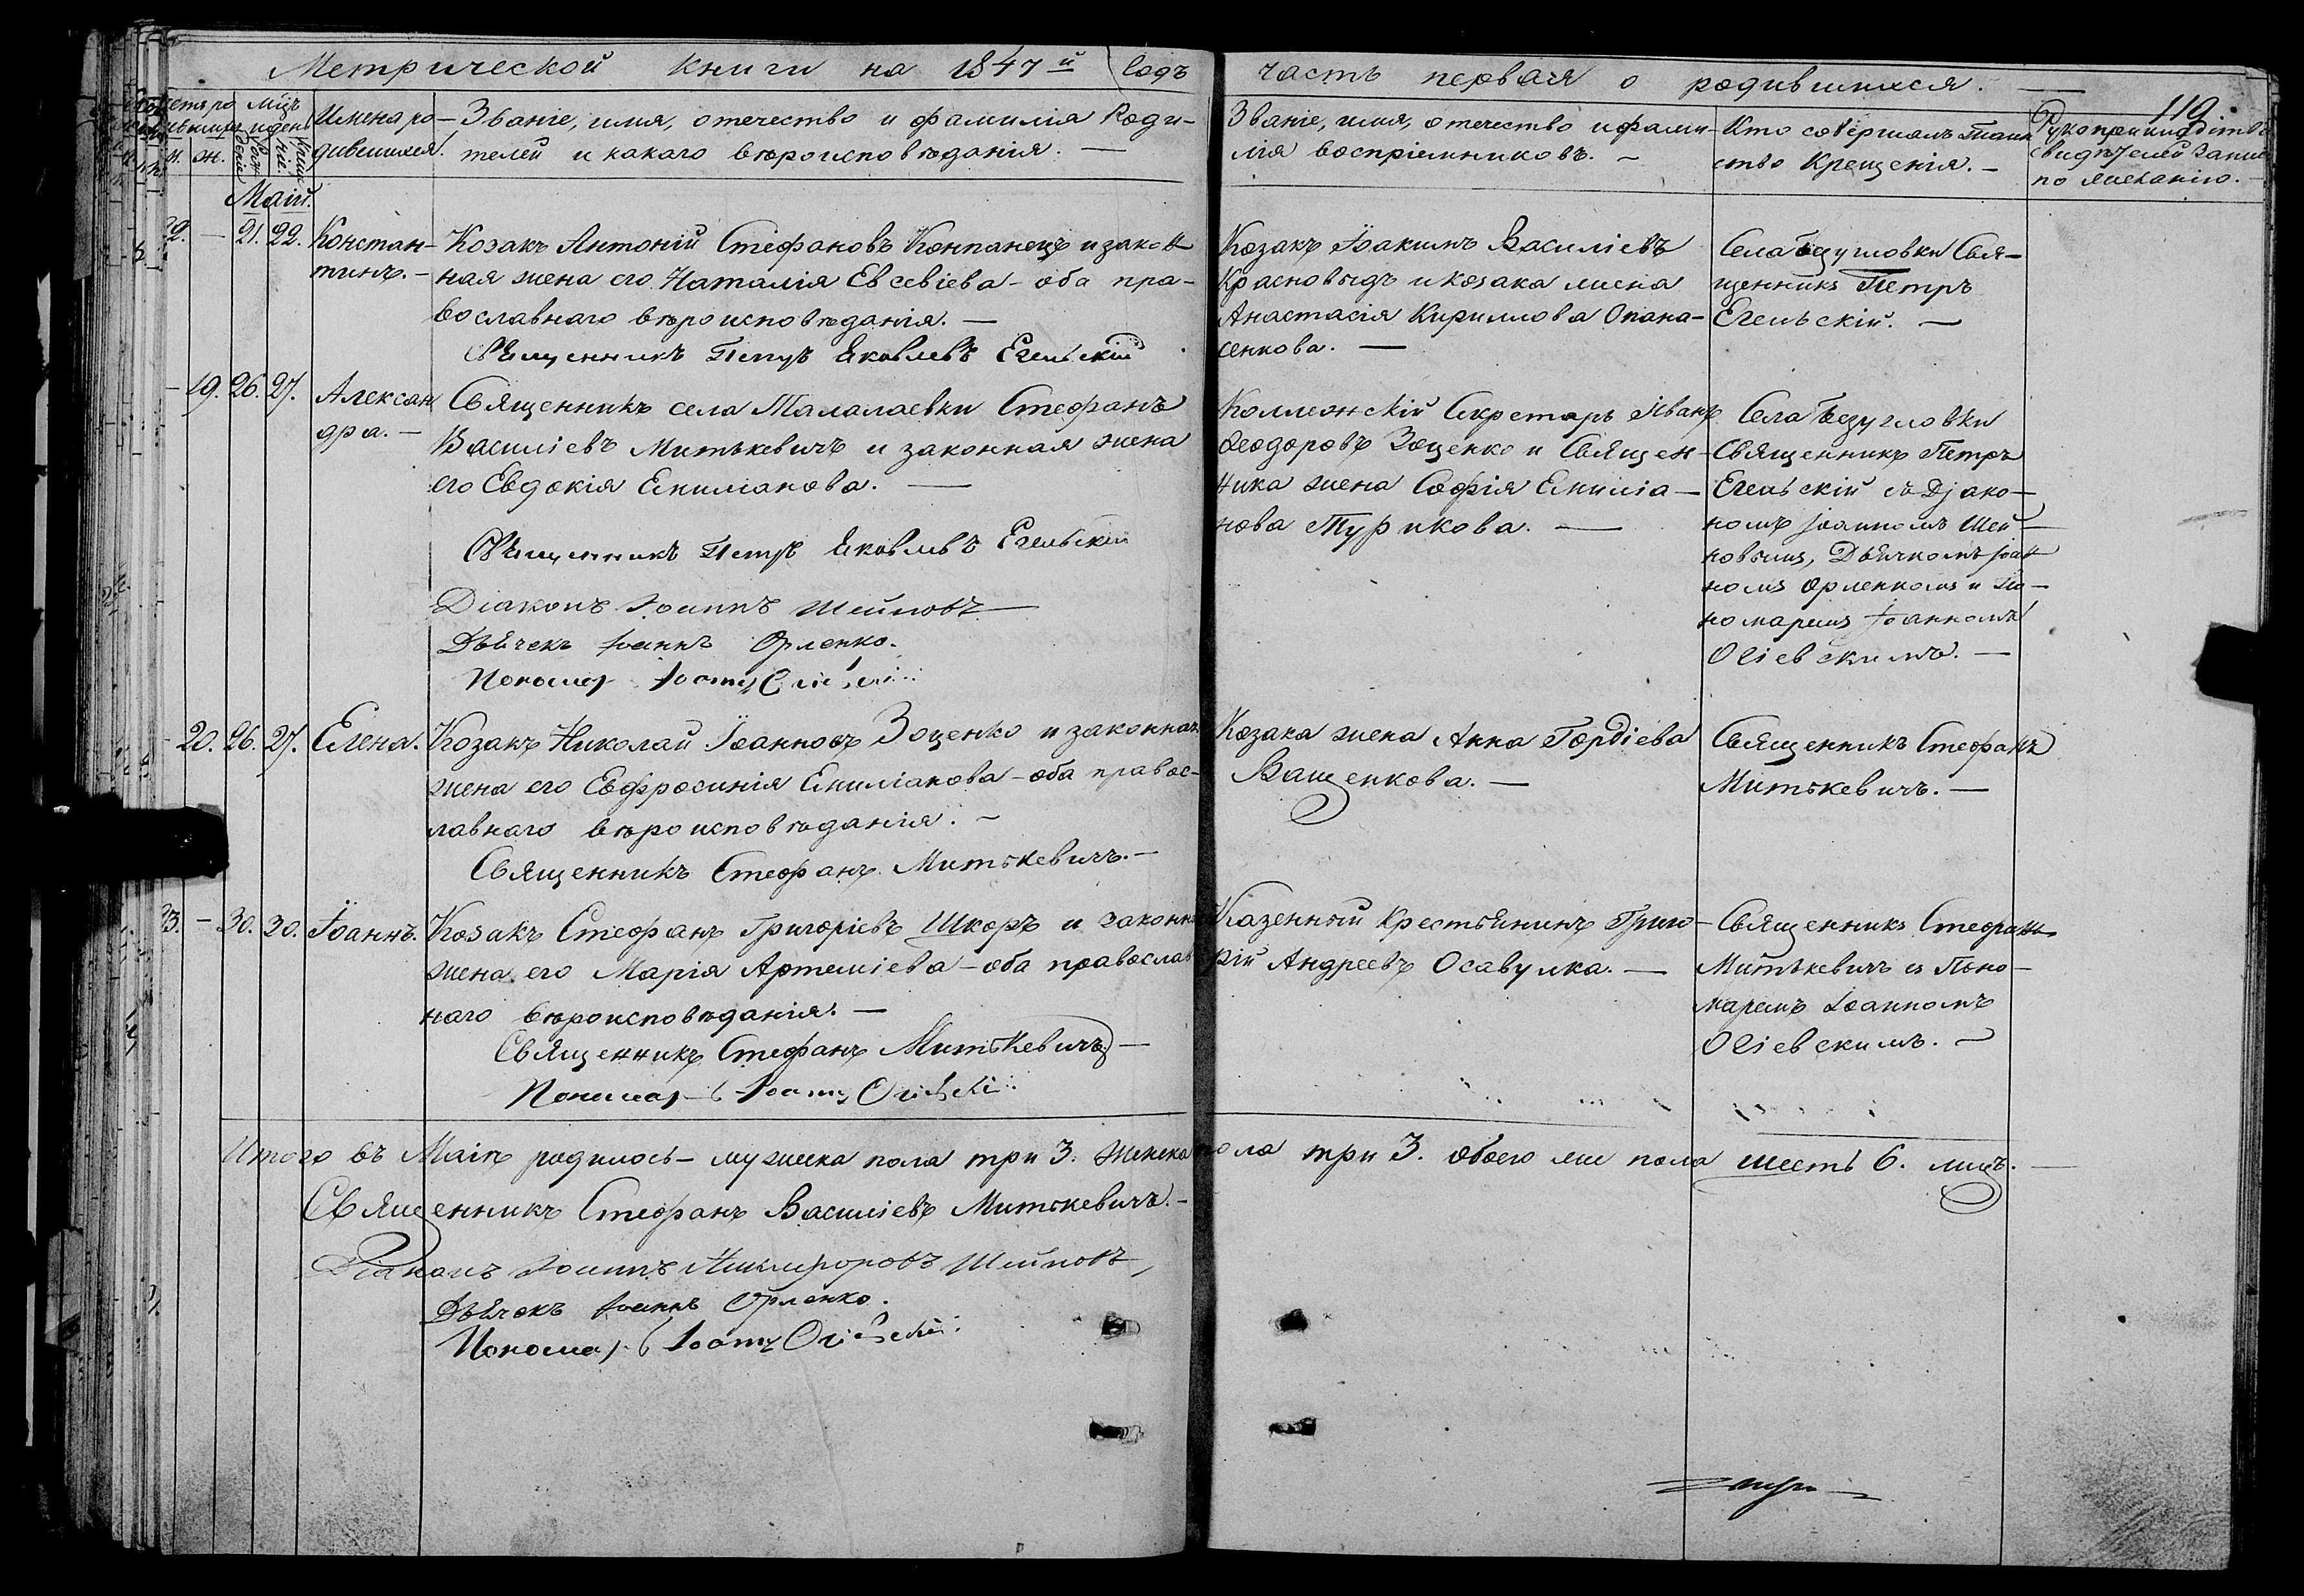 Метрической книги на 1847й Годъ часть первая о родившихся.
119.
Имена ро-
дившихся.
Званіе, имя, отечество и фамилія Роди-
телей и какого вѣроисповѣданія.
Званіе, имя, отечество и фами-
лія воспріемниковъ.
Кто совершалъ Таин
ство Крещенія.
Рукоприкладство
свидѣтелей записи
по желанію.
Маій.
21. 22.
Констан-
тинъ.
Козакъ Антоній Стефановъ Конпанецъ и закон
ная жена его Наталія Евсевіева - оба пра-
вославнаго вѣроисповѣданія.
Священникъ Петръ Яковлевъ Егельскій
Козакъ Іоакимъ Василіевъ
Красновыдъ и козака жена
Анастасія Кириллова Опана-
сенкова.
Села Безугловки Свя-
щенникъ Петръ
Егельскій.
19. 26. 27.
Алексан
дра.
Священникъ села Талалаевки Стефанъ
Василіевъ Митькевичъ и законная жена
его Евдокія Емиліанова.
Священникъ Петръ Яковлевъ Егельскій
Діаконъ Іоаннъ Шейновъ
Дьячекъ Іоаннъ Орленко.
Пономарь Іоаннъ
Коллежскій Секретарь Иванъ
Феодоровъ Зоценко и Священ-
ника жена Софія Емиліа-
нова Турикова.
Села Безугловки
Священникъ Петръ
Егельскій съ Діако-
номъ Іоанномъ Шей-
новымъ, Дьячкомъ Іоан
номъ Орленкомъ и По-
номаремъ Іоанномъ
Огіевскимъ.
20. 26. 27.
Елена.
Козакъ Николай Іоанновъ Зоценко и законная
жена его Евфросинія Емиліанова - оба правос-
лавнаго вѣроисповѣданія.
Священникъ Стефанъ Митькевичъ.
Козака жена Анна Гордіева
Ващенкова.
Священникъ Стефанъ
Митькевичъ.
30. 30.
Іоаннъ.
Козакъ Стефанъ Григоріевъ Шкоръ и законна
жена его Марія Артеміева - оба православ
наго вѣроисповѣданія.
Священникъ Стефанъ Митькевичъ
Пономарь Іоаннъ Огіевскій
Казенный крестьянинъ Григо-
рій Андреевъ Осавулка.
Священникъ Стефанъ
Митькевичъ съ Поно-
маремъ Іоанномъ
Огіевскимъ.
Итого въ Маіѣ родилось - мужеска пола три 3. женска пола три 3. обоего же пола шесть 6. лицъ.
Священникъ Стефанъ Василіевъ Митькевичъ.
Діаконъ Іоаннъ Никифоровъ Шейновъ,
Дьячекъ Іоаннъ Орленко.
Пономарь Іоаннъ Огіевскій